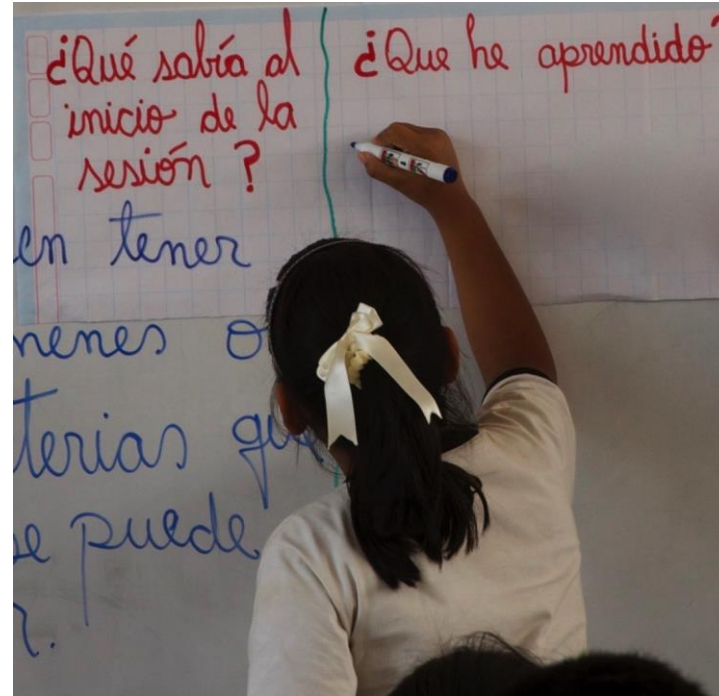 ¿Qué sabía al
inicio de la
sesión?
¿Que he aprendido
en tener
o
se puede